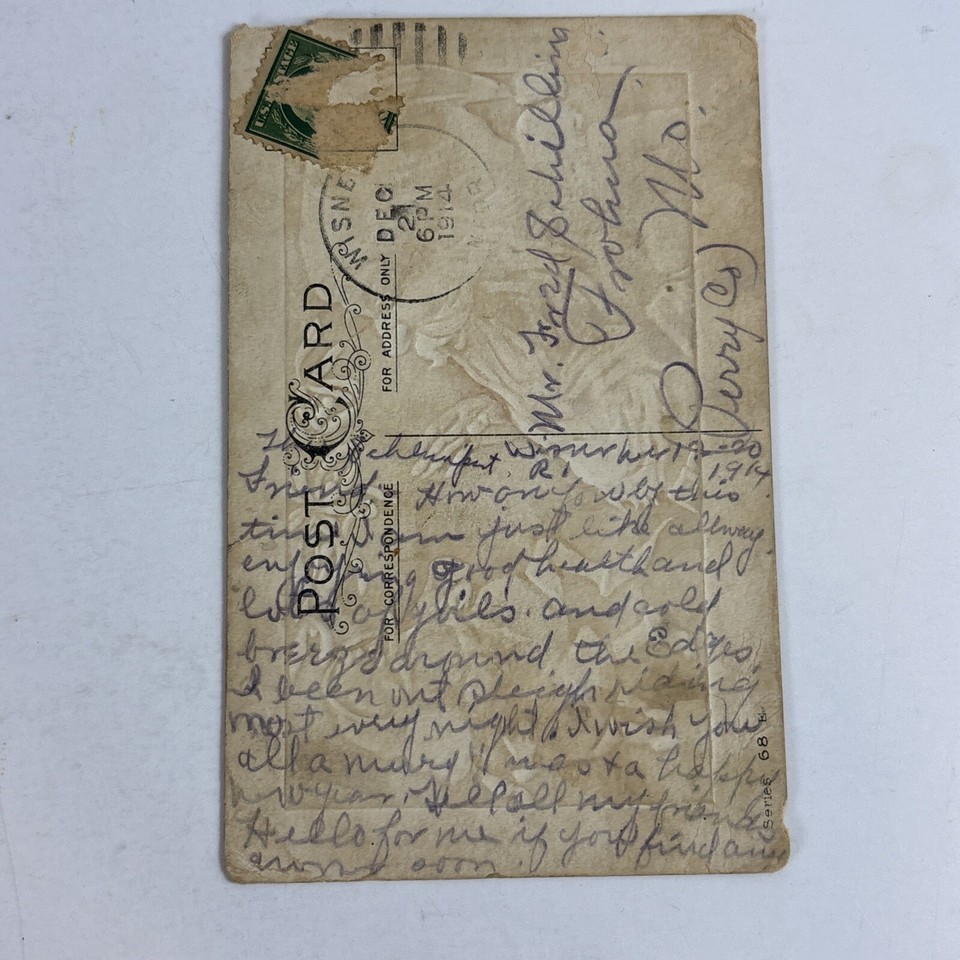 U.S. POSTAGE
WISNE
DEC
21
6 PM
1914
POST CARD
FOR ADDRESS ONLY
FOR CORRESPONDENCE
Mr. Fred Schilling
Frohna
Mo.
(Perry Co)
Wisner Nebr 12-20
R 1 1914
Friend. How are you by this
time I am just like allway
enjoying good health and
lots of and cold
around the Edges.
I been out sleigh riding
most every night. I wish you
all a mary Xmas + a happy
new year. Tell all my friends
Hello for me if you find any
soon.
Series 68 B